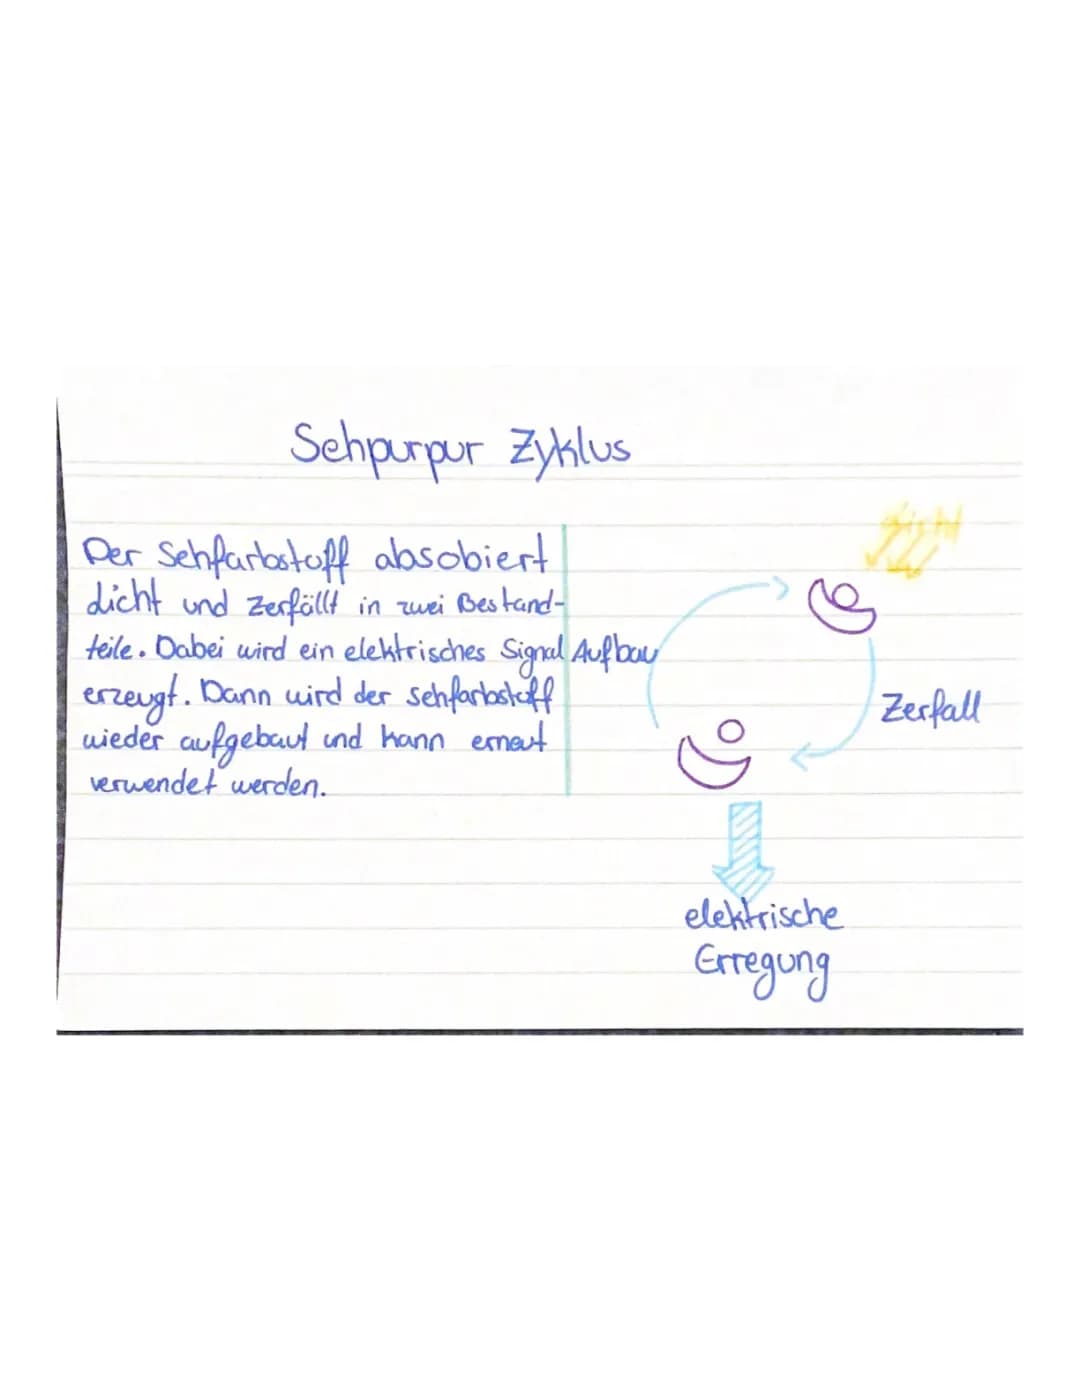 Sehpurpur Zyklus
Der Sehfarbstoff absobiert
Licht und zerfällt in zwei Bestand-
teile. Dabei wird ein elektrisches Signal
erzeugt. Dann wird der Sehfarbstoff
wieder aufgebaut und kann erneut
verwendet werden.
Licht
Aufbau
Zerfall
elektrische
Erregung